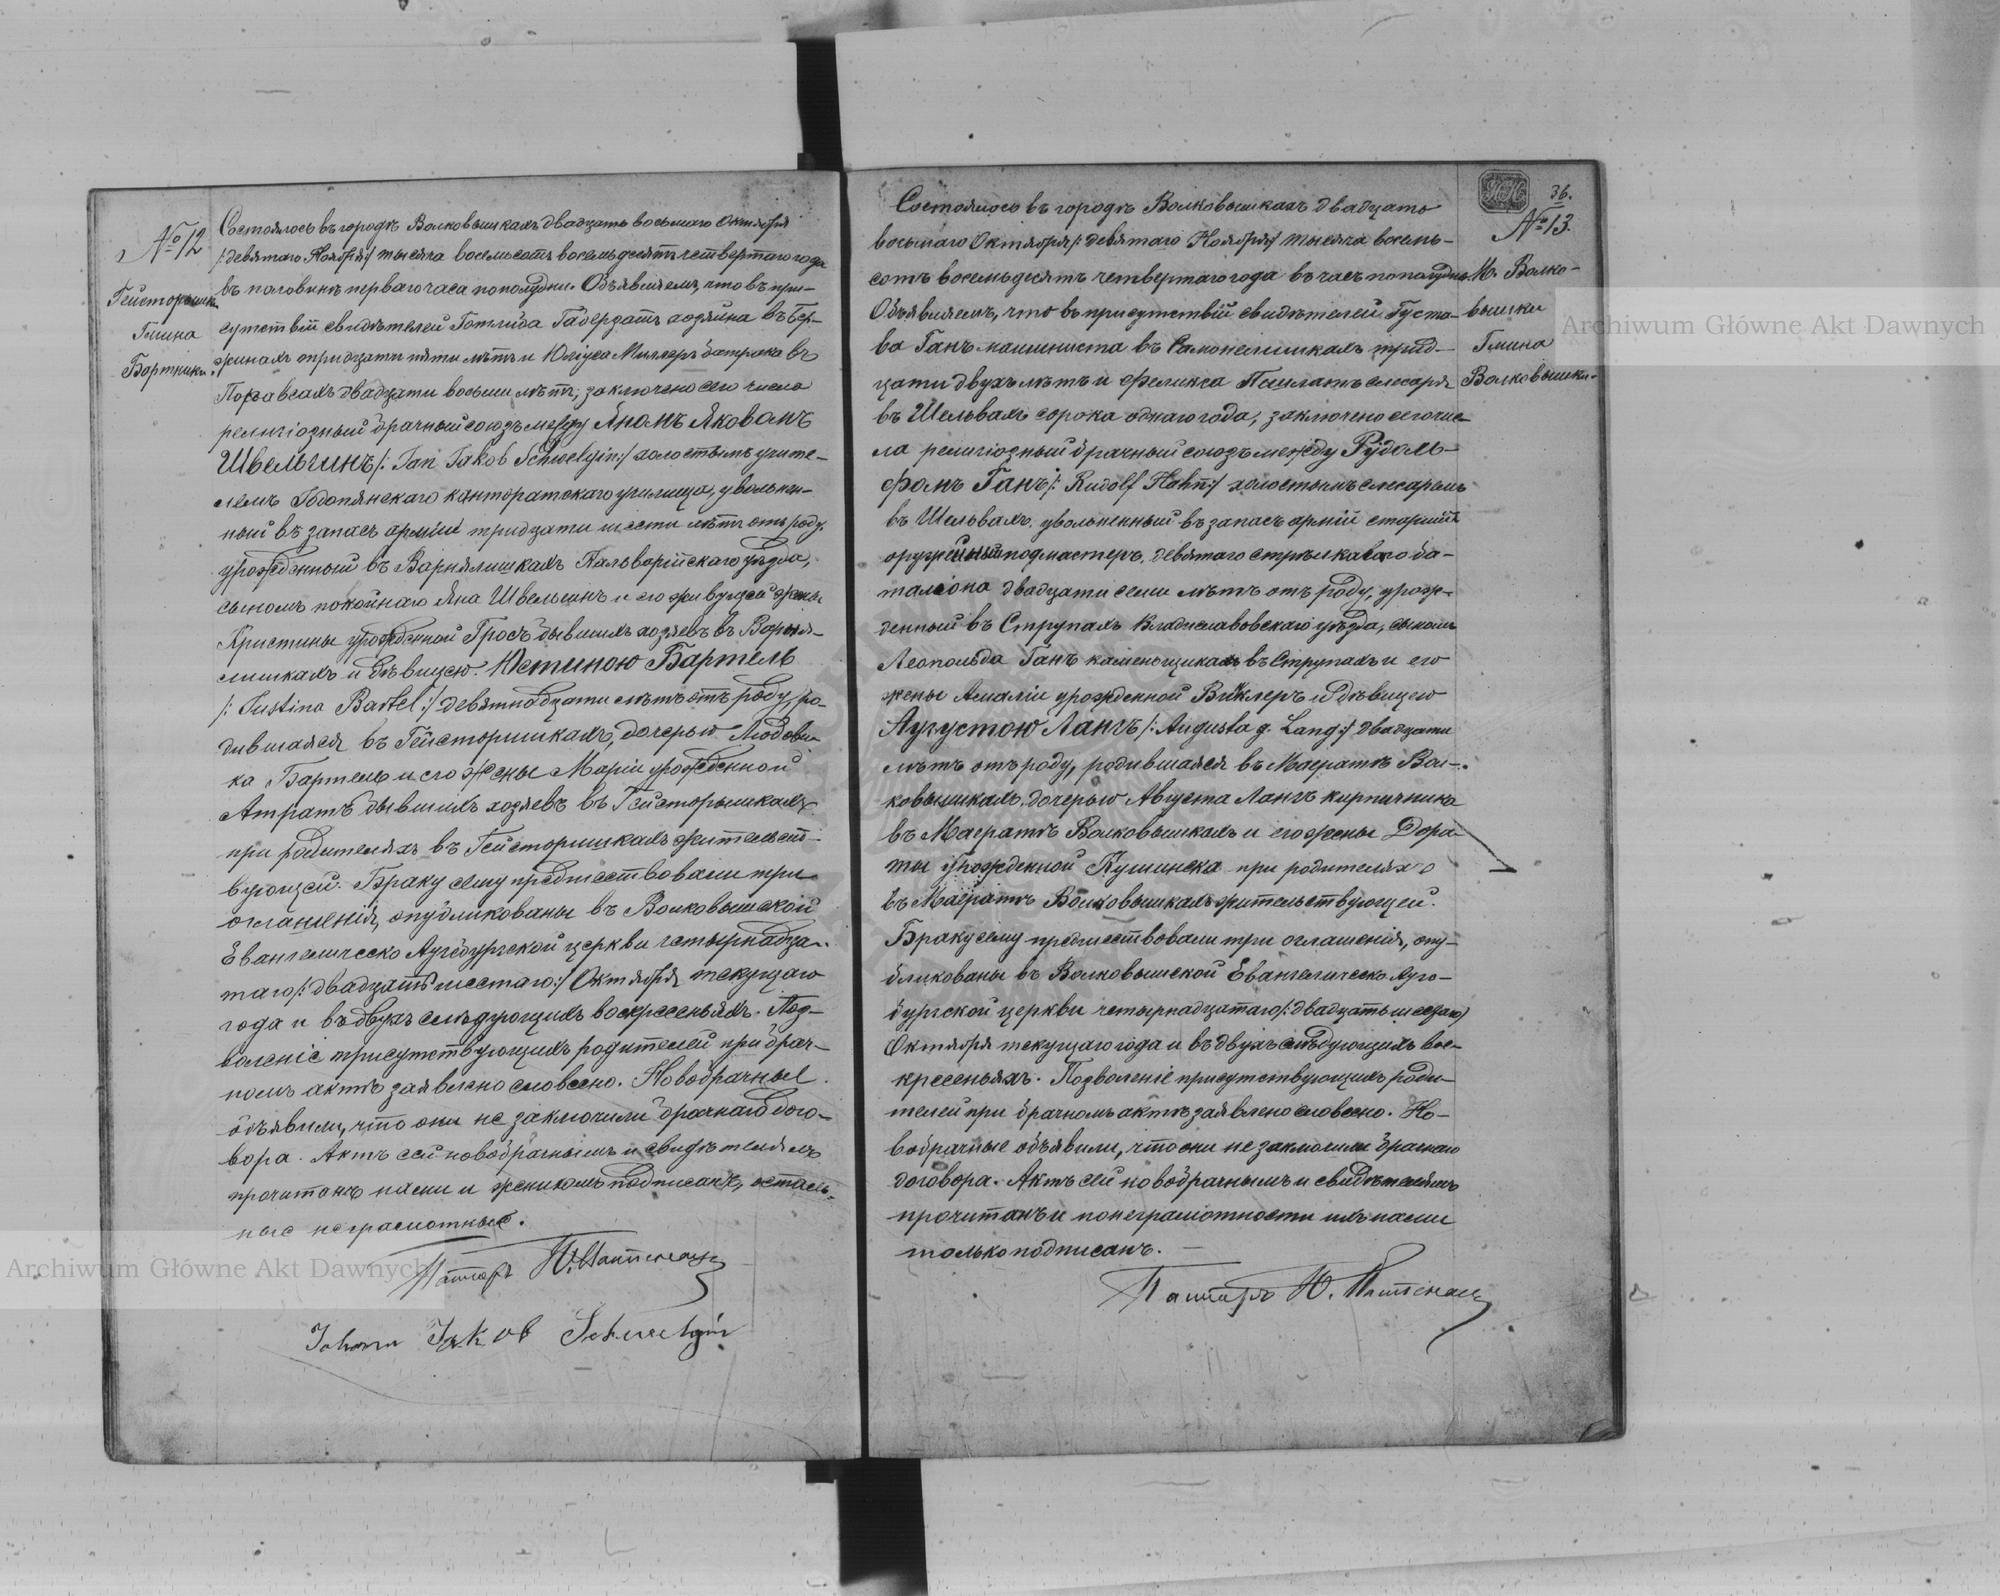 № 12
Гейсторишк.
Гмина
Бартники.
Состоялось въ городѣ Волковышкахъ двадцать восьмаго Октября
/: девятаго Ноября :/ тысяча восемьсотъ восемьдесятъ четвертаго года
въ половинѣ перваго часа пополудни. Объявляемъ, что въ при-
сутствіи свидѣтелей Готлиба Габердатъ хозяина въ Бер-
жинахъ тридцати пяти лѣтъ и Юліуса Миллеръ батрака въ
двадцати восьми лѣтъ, заключено сего числа
религіозный брачный союзъ между Яномъ Яковомъ
Швельгинъ /: Jan Jakob Schwelgin :/ холостымъ учите-
лемъ Годопянскаго канторатскаго училища, увольнен-
ный въ запасъ арміи тридцати шести лѣтъ отъ роду,
урожденный въ Варнялишкахъ Кальворійскаго уѣзда,
сыномъ покойнаго Яна Швельгинъ и его живущей жены
Кристины урожденной Гросъ бывшихъ хозяевъ въ Варня-
лишкахъ и дѣвицею Юстиною Бартель
/: Justina Bartel :/ девятнадцати лѣтъ отъ роду, ро-
дившаяся въ Гейсторишкахъ, дочерью Людови-
ка Бартель и его жены Маріи урожденной
Атратъ бывшихъ хозяевъ въ Гейсторишкахъ
при родителяхъ въ Гейсторишкахъ жительст-
вующей. Браку сему предшествовали три
оглашенія, опубликованы въ Волковышской
Евангелическо Аугсбургской церкви четырнадца-
таго /: двадцать шестаго :/ Октября текущаго
года и въ двухъ слѣдующихъ воскресеньяхъ. Поз-
воленіе присутствующихъ родителей при брач-
номъ актѣ заявлено словесно. Новобрачные
объявили, что они не заключили брачнаго дого-
вора. Актъ сей новобрачнымъ и свидѣтелямъ
прочитанъ нами и женихомъ подписанъ, осталь-
ные неграмотные.
Пасторъ Ю.
Johann Jakob Schwelgin
36.
№ 13.
М. Волко-
вышки
Гмина
Волковышки.
Состоялось въ городѣ Волковышкахъ двадцать
восьмаго Октября /: девятаго Ноября :/ тысяча восемь-
сотъ восемьдесятъ четвертаго года въ часъ пополудни.
Объявляемъ, что въ присутствіи свидѣтелей Густа-
ва Ганъ машиниста въ трид-
цати двухъ лѣтъ и Феликса слесаря
въ Шельвахъ сорока однаго года, заключено сего чис-
ла религіозный брачный союзъ между Рудоль-
фомъ Ганъ /: Rudolf Hahn :/ холостымъ слесаремъ
въ Шельвахъ, увольненный въ запасъ арміи старшій
оружейный подмастеръ, девятаго стрѣлковаго ба-
таліона двадцати семи лѣтъ отъ роду, урож-
денный въ Струпахъ Владиславовскаго уѣзда, сыномъ
Леопольда Ганъ каменьщикахъ въ Струпахъ и его
жены Амаліи урожденной Винклеръ и дѣвицею
Аугустою Лангъ /: Augusta g. Lang :/ двадцати
лѣтъ отъ роду, родившаяся въ Маіратѣ Вол-
ковышкахъ, дочерью Августа Лангъ кирпичника
въ Маіратѣ Волковышкахъ и его жены Доро-
ты урожденной при родителяхъ
въ Маіратѣ Волковышкахъ жительствующей.
Браку сему предшествовали три оглашенія, опу-
бликованы въ Волковышской Евангелическо Ауго-
бургской церкви четырнадцатаго /: двадцать шестаго :/
Октября текущаго года и въ двухъ слѣдующихъ вос-
кресеньяхъ. Позволеніе присутствующихъ роди-
телей при брачномъ актѣ заявлено словесно. Но-
вобрачные объявили, что они не заключили брачнаго
договора. Актъ сей новобрачнымъ и свидѣтелямъ
прочитанъ и по неграмотности ихъ нами
только подписанъ. —
Пасторъ Ю.
Archiwum Główne Akt Dawnych
Archiwum Główne Akt Dawnych